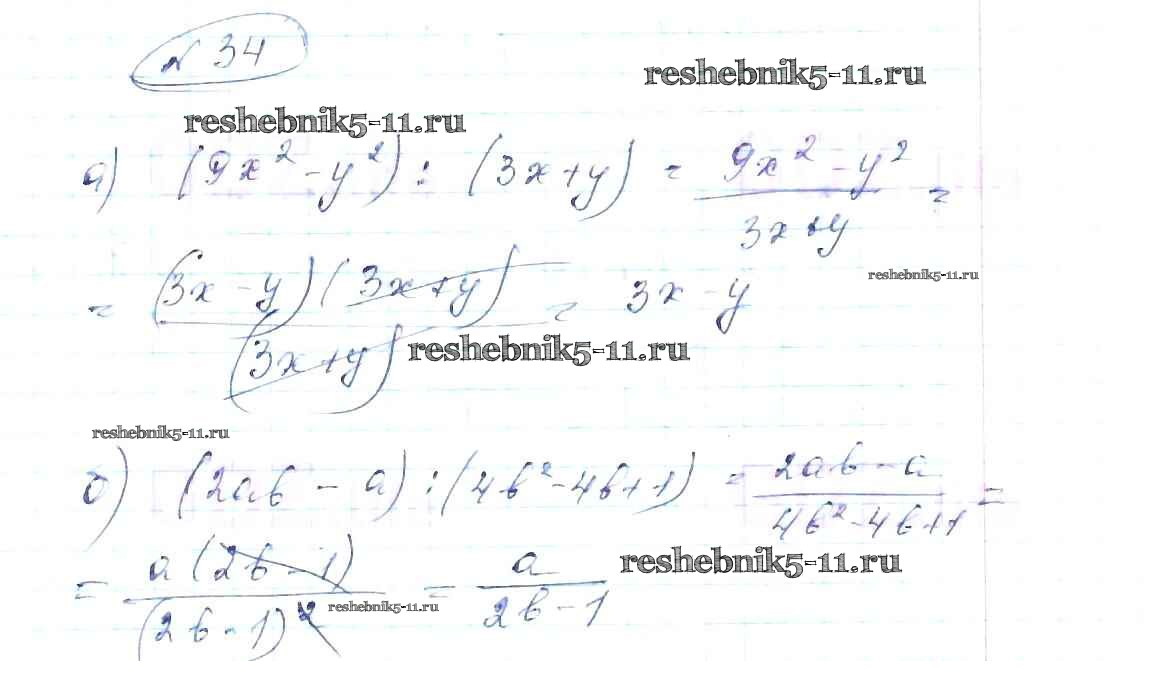 № 34
reshebnik5-11.ru
reshebnik5-11.ru
а) (9x² - y²) : (3x + y) = \frac{9x² - y²}{3x + y} =
reshebnik5-11.ru
= \frac{(3x - y)(3x + y)}{(3x + y)} = 3x - y
reshebnik5-11.ru
reshebnik5-11.ru
б) (2ab - a) : (4b² - 4b + 1) = \frac{2ab - a}{4b² - 4b + 1} =
reshebnik5-11.ru
= \frac{a(2b - 1)}{(2b - 1)²} = \frac{a}{2b - 1}
reshebnik5-11.ru